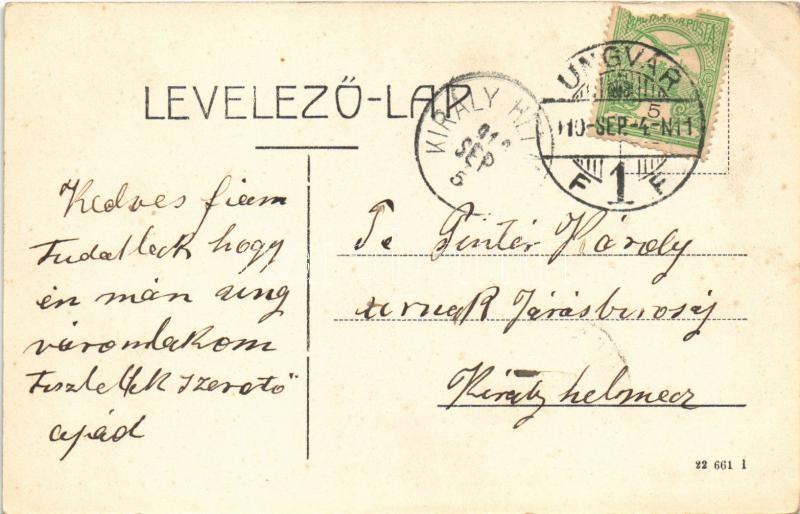 MAGYAR KIR. POSTA
UNGVÁR
5
910-SEP-4-N11
F 1 F
KIRÁLY HEL
SEP
5
LEVELEZŐ-LAP
Kedves fiam
Tudatlak hogy
én mán ung
váromlakom
Tisztellek szerető
apád
Te Pintér Károly
urnak Járásbiroság
Királyhelmecz
22 661 i